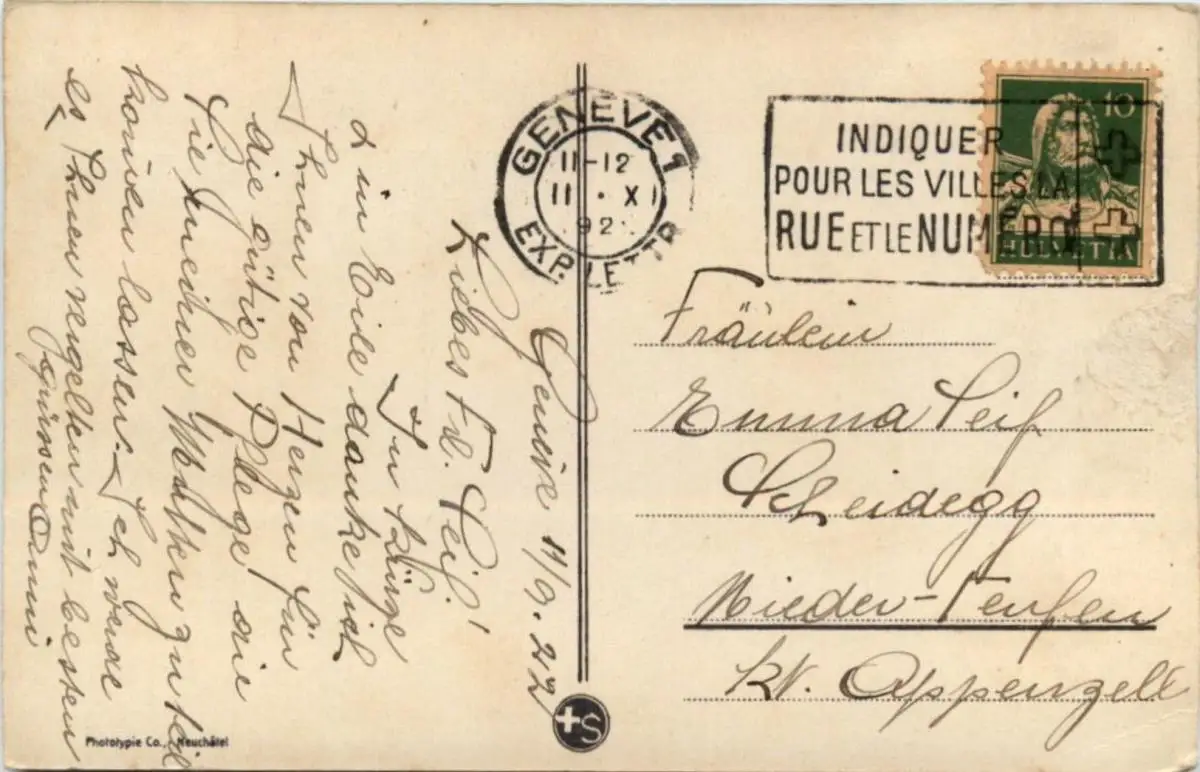 Genève 11/9. 22
Liebes Frl. Seif!
In Kürze
& in Eile danke ich
Ihnen von Herzen für
die gütige Pflege die
Sie meiner Mutter zu teil
kommen lassen. Ich werde
es Ihnen vergelten mit besten
Grüssen Anni
GENÈVE 1
11-12
11 · XI
92
EXP. LETTR
INDIQUER
POUR LES VILLES LA
RUE ET LE NUMÉRO
10
HELVETIA
Fräulein
Emma Seif
Scheidegg
Nieder-Teufen
Kt. Appenzell
Phototypie Co., Neuchâtel
+S